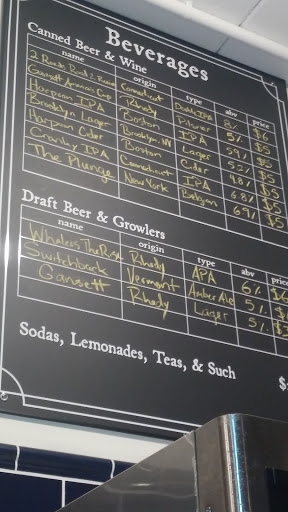 Beverages
Canned Beer & Wine
name origin type abv price
2 Roads Road 2 Ruin Connecticut Double IPA 8% $6
Gansett Americas Cup Rhody Pilsner 5% $5
Harpoon IPA Boston IPA 5.9% $5
Brooklyn Lager Brooklyn, NY Lager 5.2% $5
Harpoon Cider Boston Cider 4.8% $5
Cranky IPA Connecticut IPA 6.8% $5
The Plunge New York Belgian 6.9% $5
Draft Beer & Growlers
name origin type abv price
Whalers The Rise Rhody APA 6%
Switchback Vermont Amber Ale 5%
Gansett Rhody Lager 5%
Sodas, Lemonades, Teas, & Such $